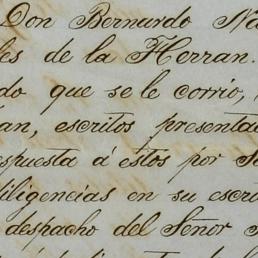 Don Bernardo Na
es de la Herran.
do que se le corrio,
an, escritos presenta
espuesta á estos por S
diligencias en su escri
despacho del Señor